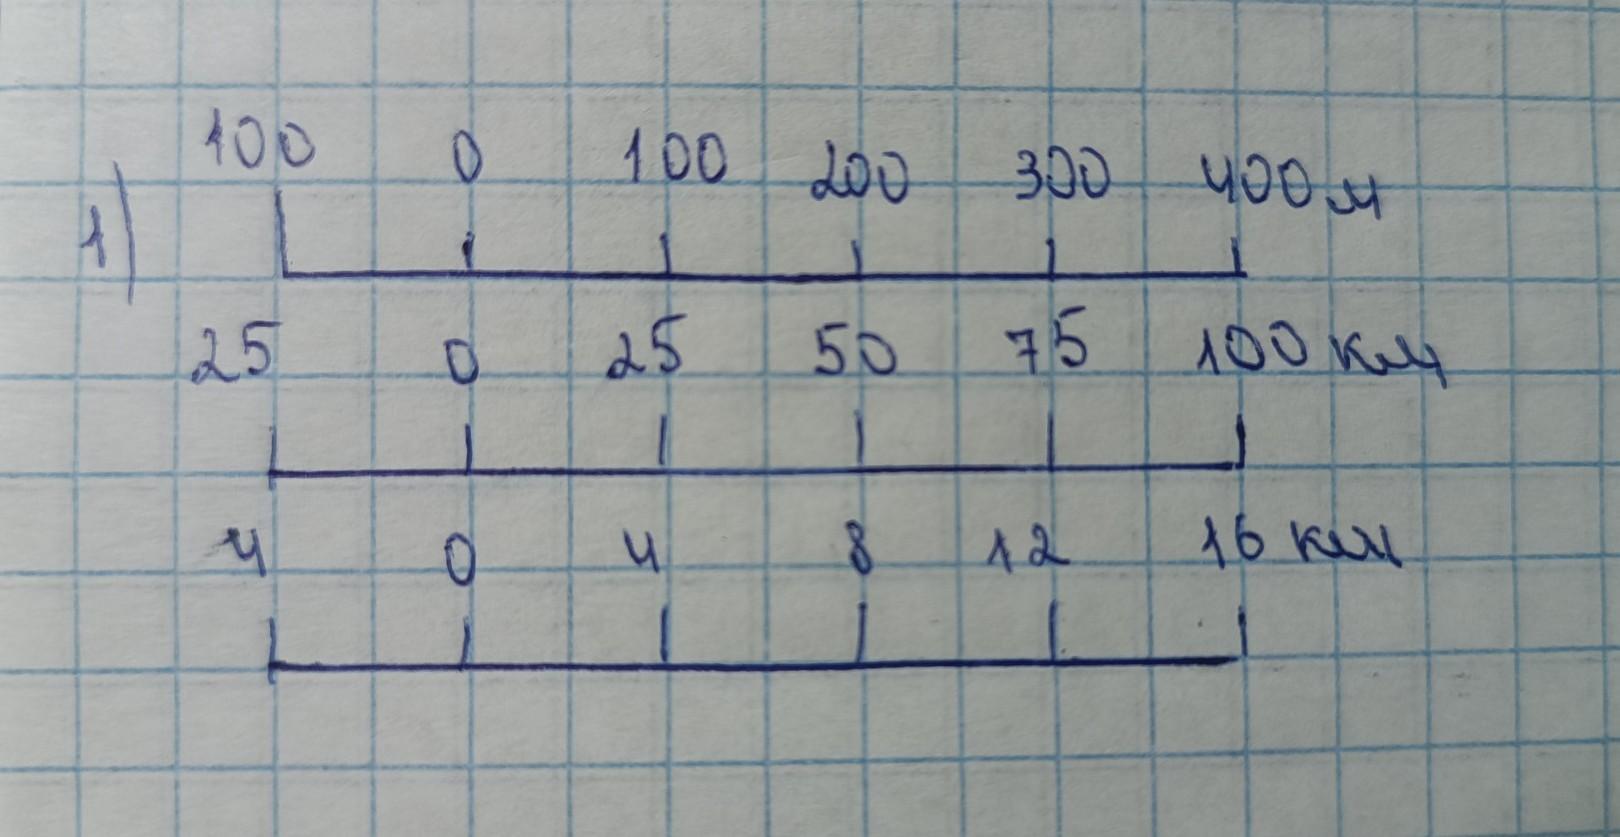 100 0 100 200 300 400 м
1)
25 0 25 50 75 100 км
4 0 4 8 12 16 км